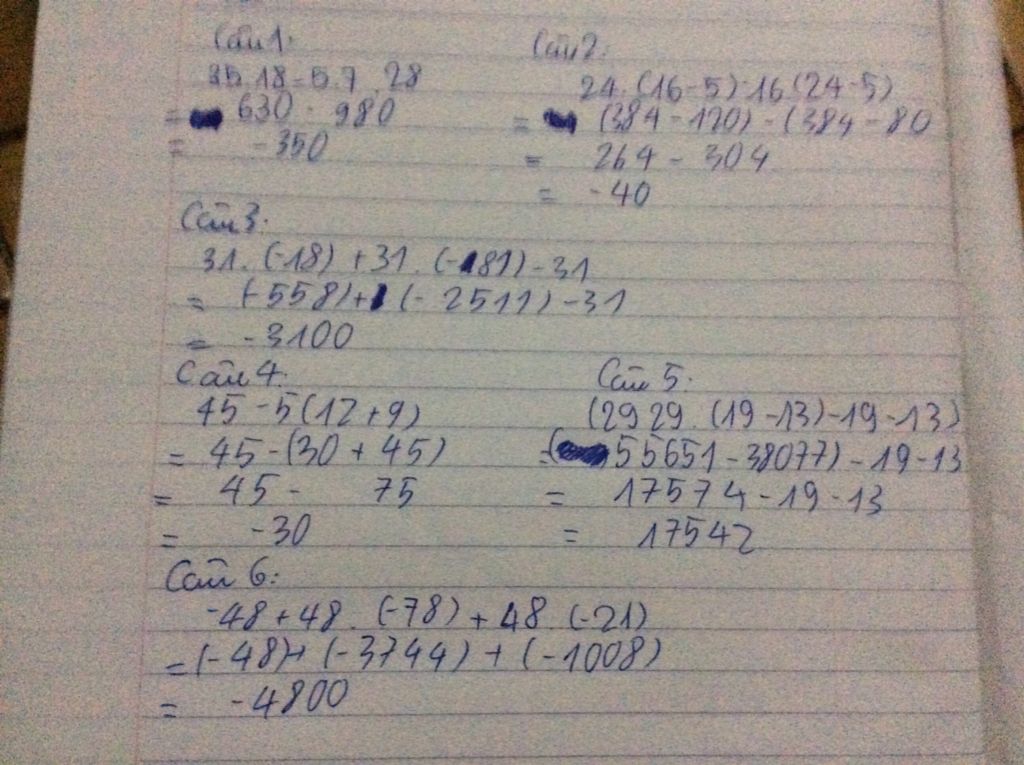 Câu 1:
35.18-5.7.28
= 630 - 980
= -350
Câu 2:
24.(16-5)-16(24-5)
= (384-120)-(384-80
= 264 - 304
= -40
Câu 3:
31.(-18)+31.(-81)-31
= (-558)+(-2511)-31
= -3100
Câu 4:
45-5(12+9)
= 45-(30+45)
= 45- 75
= -30
Câu 5:
(29 29.(19-13)-19-13)
=( 55651-38077)-19-13
= 17574-19-13
= 17542
Câu 6:
-48+48.(-78)+48.(-21)
=(-48)+(-3744)+(-1008)
= -4800